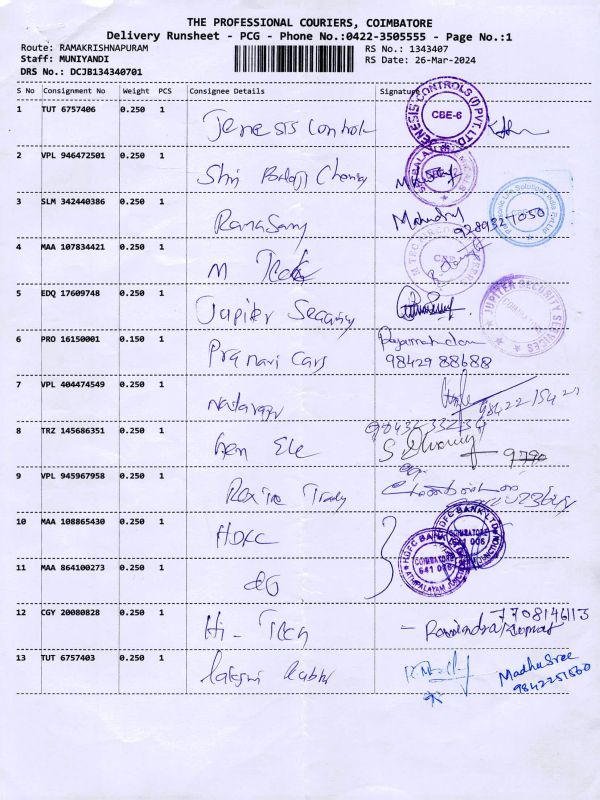 THE PROFESSIONAL COURIERS, COIMBATORE
Delivery Runsheet - PCG - Phone No.:0422-3505555 - Page No.:1
Route: RAMAKRISHNAPURAM RS No.: 1343407
Staff: MUNIYANDI RS Date: 26-Mar-2024
DRS No.: DCJB134340701
S No Consignment No Weight PCS Consignee Details Signature
1 TUT 6757406 0.250 1 Jenesis Control GENESIS CONTROLS (I) PVT. LTD. CBE-6
2 VPL 946472501 0.250 1 Shri Balaji
3 SLM 342440386 0.250 1 Ramasamy 9289327050
4 MAA 107834421 0.250 1 M Tech
5 EDQ 17609748 0.250 1 Jupiter Security JUPITER SECURITY SERVICES
6 PRO 16150001 0.150 1 Pranavi Cars
98429 88688
7 VPL 404474549 0.250 1
8 TRZ 145686351 0.250 1 Gem Ele
9 VPL 945967958 0.250 1
10 MAA 108865430 0.250 1 HDFC HDFC BANK LTD COIMBATORE 641 006
11 MAA 864100273 0.250 1 do HDFC BANK COIMBATORE 641 006
12 CGY 20080828 0.250 1 Hi-Tech 7708146113
13 TUT 6757403 0.250 1 Lakshmi MadhuSree
9842251560